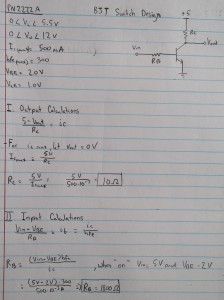 PN2222A
BJT Switch Design
0 < Vo < 5.5V
0 < Vin < 12V
Ic(max) = 500mA
hFE(min) = 300
VBE = 2.0V
VCE = 1.0V
+5
Rc
Vout
Vin
RB
I. Output Calculations
5-Vout / Rc = ic
- For ic max, let Vout = 0V
Icmax = 5V / Rc
Rc = 5V / Icmax = 5V / 500·10⁻³A = 10Ω
II Input Calculations
Vin-VBE / RB = ib = ic / hFE
RB = (Vin-VBE)hFE / ic , when "on" Vin=5V and VBE=2V
= (5V-2V)·300 / 500·10⁻³A ⇒ RB = 1800Ω